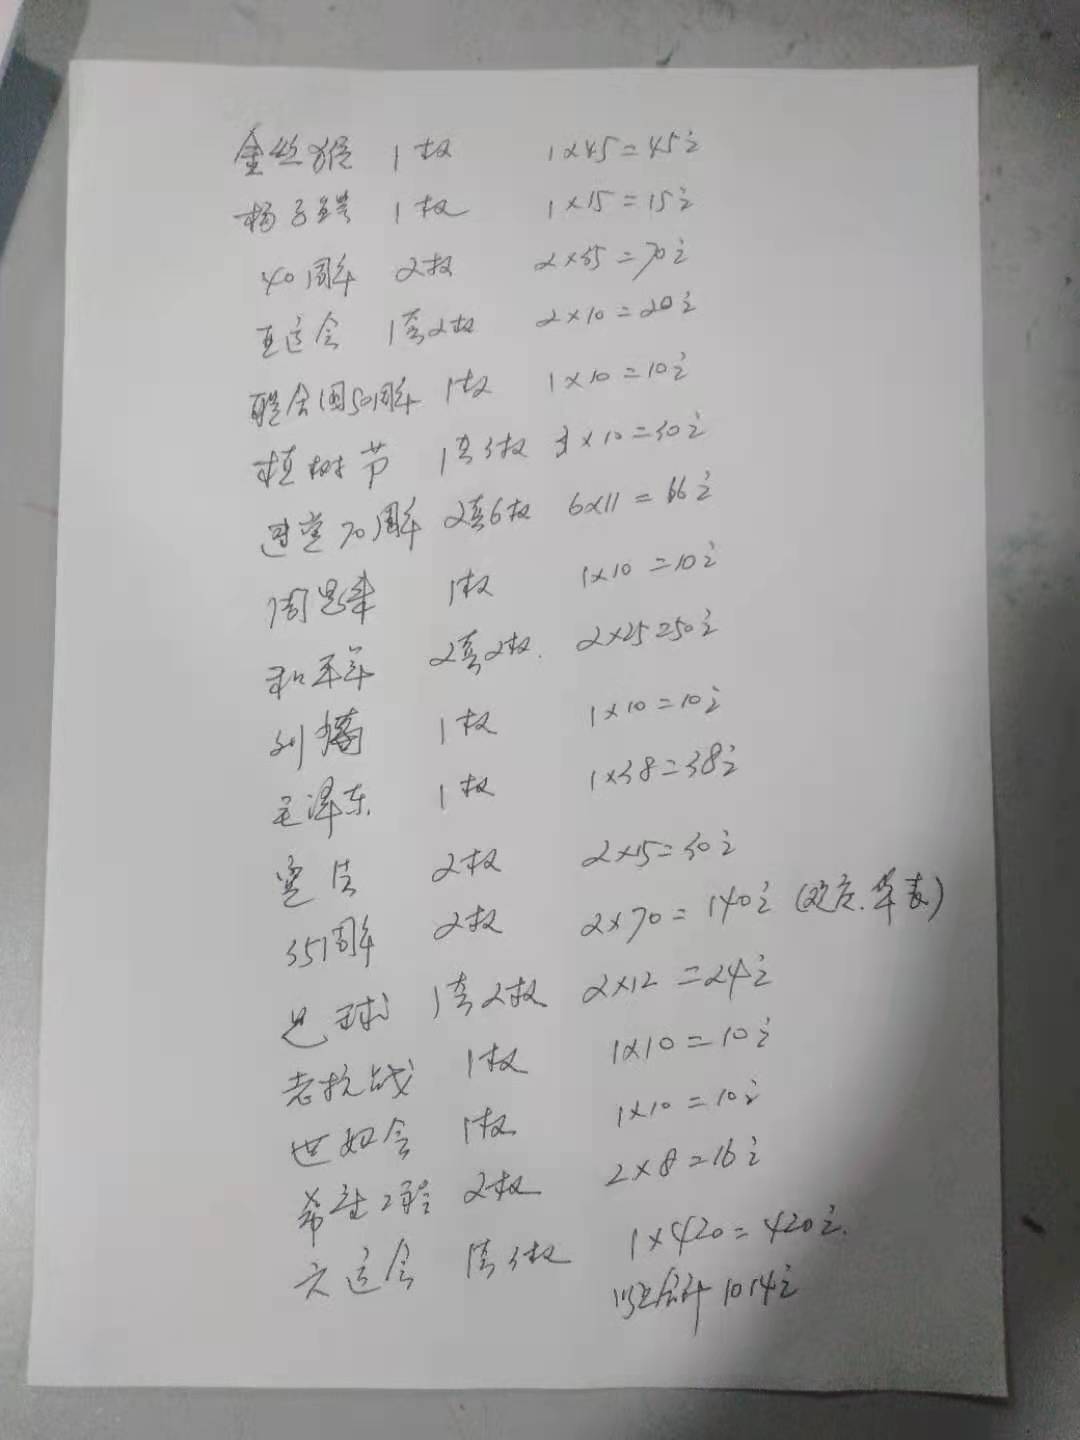 金丝猴 1枚 1×45=45元
杨子鳄 1枚 1×15=15元
40周年 2枚 2×35=70元
亚运会 1套2枚 2×10=20元
联合国50周年 1枚 1×10=10元
植树节 1套3枚 3×10=30元
建党70周年 2套6枚 6×11=66元
周恩来 1枚 1×10=10元
和平年 2套2枚. 2×25=50元
刘 1枚 1×10=10元
毛泽东 1枚 1×38=38元
宪法 2枚 2×15=30元
35周年 2枚 2×70=140元 (华表)
足球 1套2枚 2×12=24元
老抗战 1枚 1×10=10元
世妇会 1枚 1×10=10元
希望工程 2枚 2×8=16元
六运会 1套3枚 1×420=420元.
以上合计 1014元